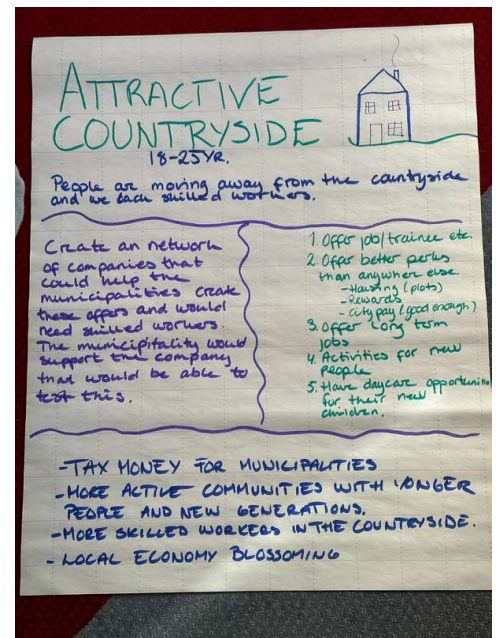 ATTRACTIVE
COUNTRYSIDE
18-25YR.
People are moving away from the countryside
and we lack skilled workers.
Create an network
of companies that
could help the
municipalities create
these offers and would
need skilled workers.
The municipitality would
support the company
that would be able to
test this.
1. Offer job/trainee etc.
2. Offer better perks
than anywhere else.
- Housing (plots)
- Rewards
- City pay (good enough)
3. Offer long term
jobs
4. Activities for new
people
5. Have daycare opportunities
for their new
children.
- TAX MONEY FOR MUNICIPALITIES
- MORE ACTIVE COMMUNITIES WITH YONGER
PEOPLE AND NEW GENERATIONS.
- MORE SKILLED WORKERS IN THE COUNTRYSIDE.
- LOCAL ECONOMY BLOSSOMING